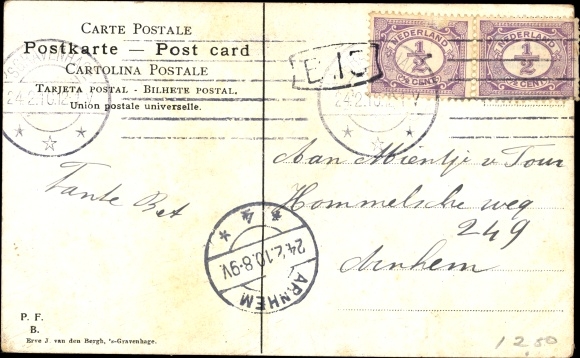 CARTE POSTALE
Postkarte — Post card
CARTOLINA POSTALE
TARJETA POSTAL - BILHETE POSTAL.
Union postale universelle.
24.2.10.12
24.2.10
NEDERLAND
1/2
1/2 CENT
NEDERLAND
1/2
1/2 CENT
Tante Bet
Aan Mientje v Tour
Hommelsche weg
249
Arnhem
ARNHEM
24.2.10.8-9V.
4
P. F.
B.
Erve J. van den Bergh, 's-Gravenhage.
12,50